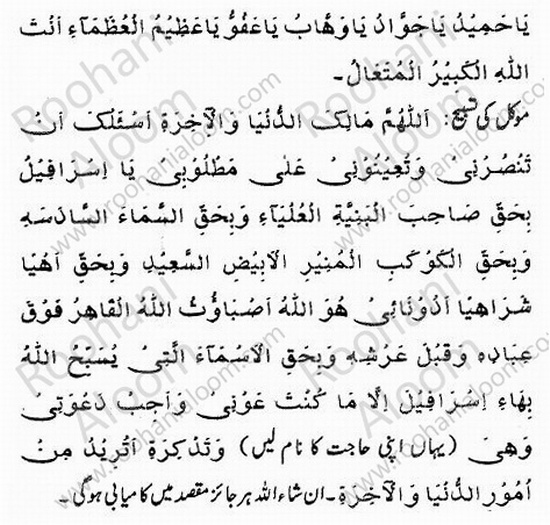 يَا حَمِيْدُ يَا جَوَّادُ يَا وَهَّابُ يَا عَفُوُّ يَا عَظِيْمُ الْعُظَمَآءِ اَنْتَ
اللهِ الْكَبِيْرُ الْمُتَعَالُ۔
موکل کی تسبیح: اَللّٰهُمَّ مَالِكَ الدُّنْيَا وَالْآخِرَةِ اَسْئَلُكَ اَنْ
تَنْصُرَنِىْ وَتُعِيْنُوْنِىْ عَلٰى مَطْلُوْبِىْ يَا اِسْرَافِيْلُ
بِحَقِّ صَاحِبَ الْبَنِيَّةِ الْعُلْيَآءِ وَبِحَقِّ السَّمَآءِ السَّادِسَهِ
وَبِحَقِّ الْكَوْكَبِ الْمُنِيْرِ الْاَبْيَضِ السَّعِيْدِ وَبِحَقِّ اَهْيَا
شَرَاهِيَا اَدُوْنَائِىْ هُوَ اللهُ اَصْبَاؤُثُ اللهُ الْقَاهِرُ فَوْقَ
عِبَادِهٖ وَقَبْلَ عَرْشِهٖ وَبِحَقِّ الْاَسْمَآءِ الَّتِىْ يُسَبِّحُ اللهُ
بِهَاءِ اِسْرَافِيْلَ اِلَّا مَا كُنْتَ عَوْنِىْ وَاَجِبْ دَعْوَتِىْ
وَهِىَ (یہاں اپنی حاجت کا نام لیں) وَتَذْكِرَةِ اُتْرِيْدُ مِنْ
اُمُوْرِ الدُّنْيَا وَالْآخِرَةِ۔ ان شاء اللہ ہر جائز مقصد میں کامیابی ہوگی۔
Roohani Aloom
www.roohanialoom.com